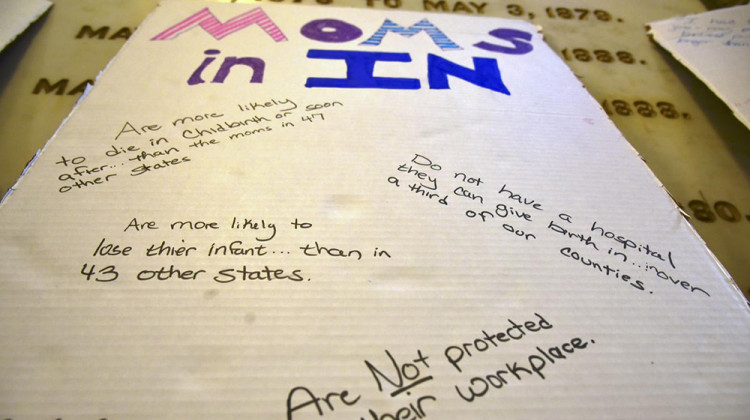 TO MAY 3, 1879.
MA
MA
MOMS
in IN
Are more likely
to die in Chidbirth or soon
after... than the moms in 47
other states
Do not have a hospital
they can give birth in...in over
a third of our
counties.
Are more likely to
lose thier infant... than in
43 other states.
Are Not protected
their workplace.